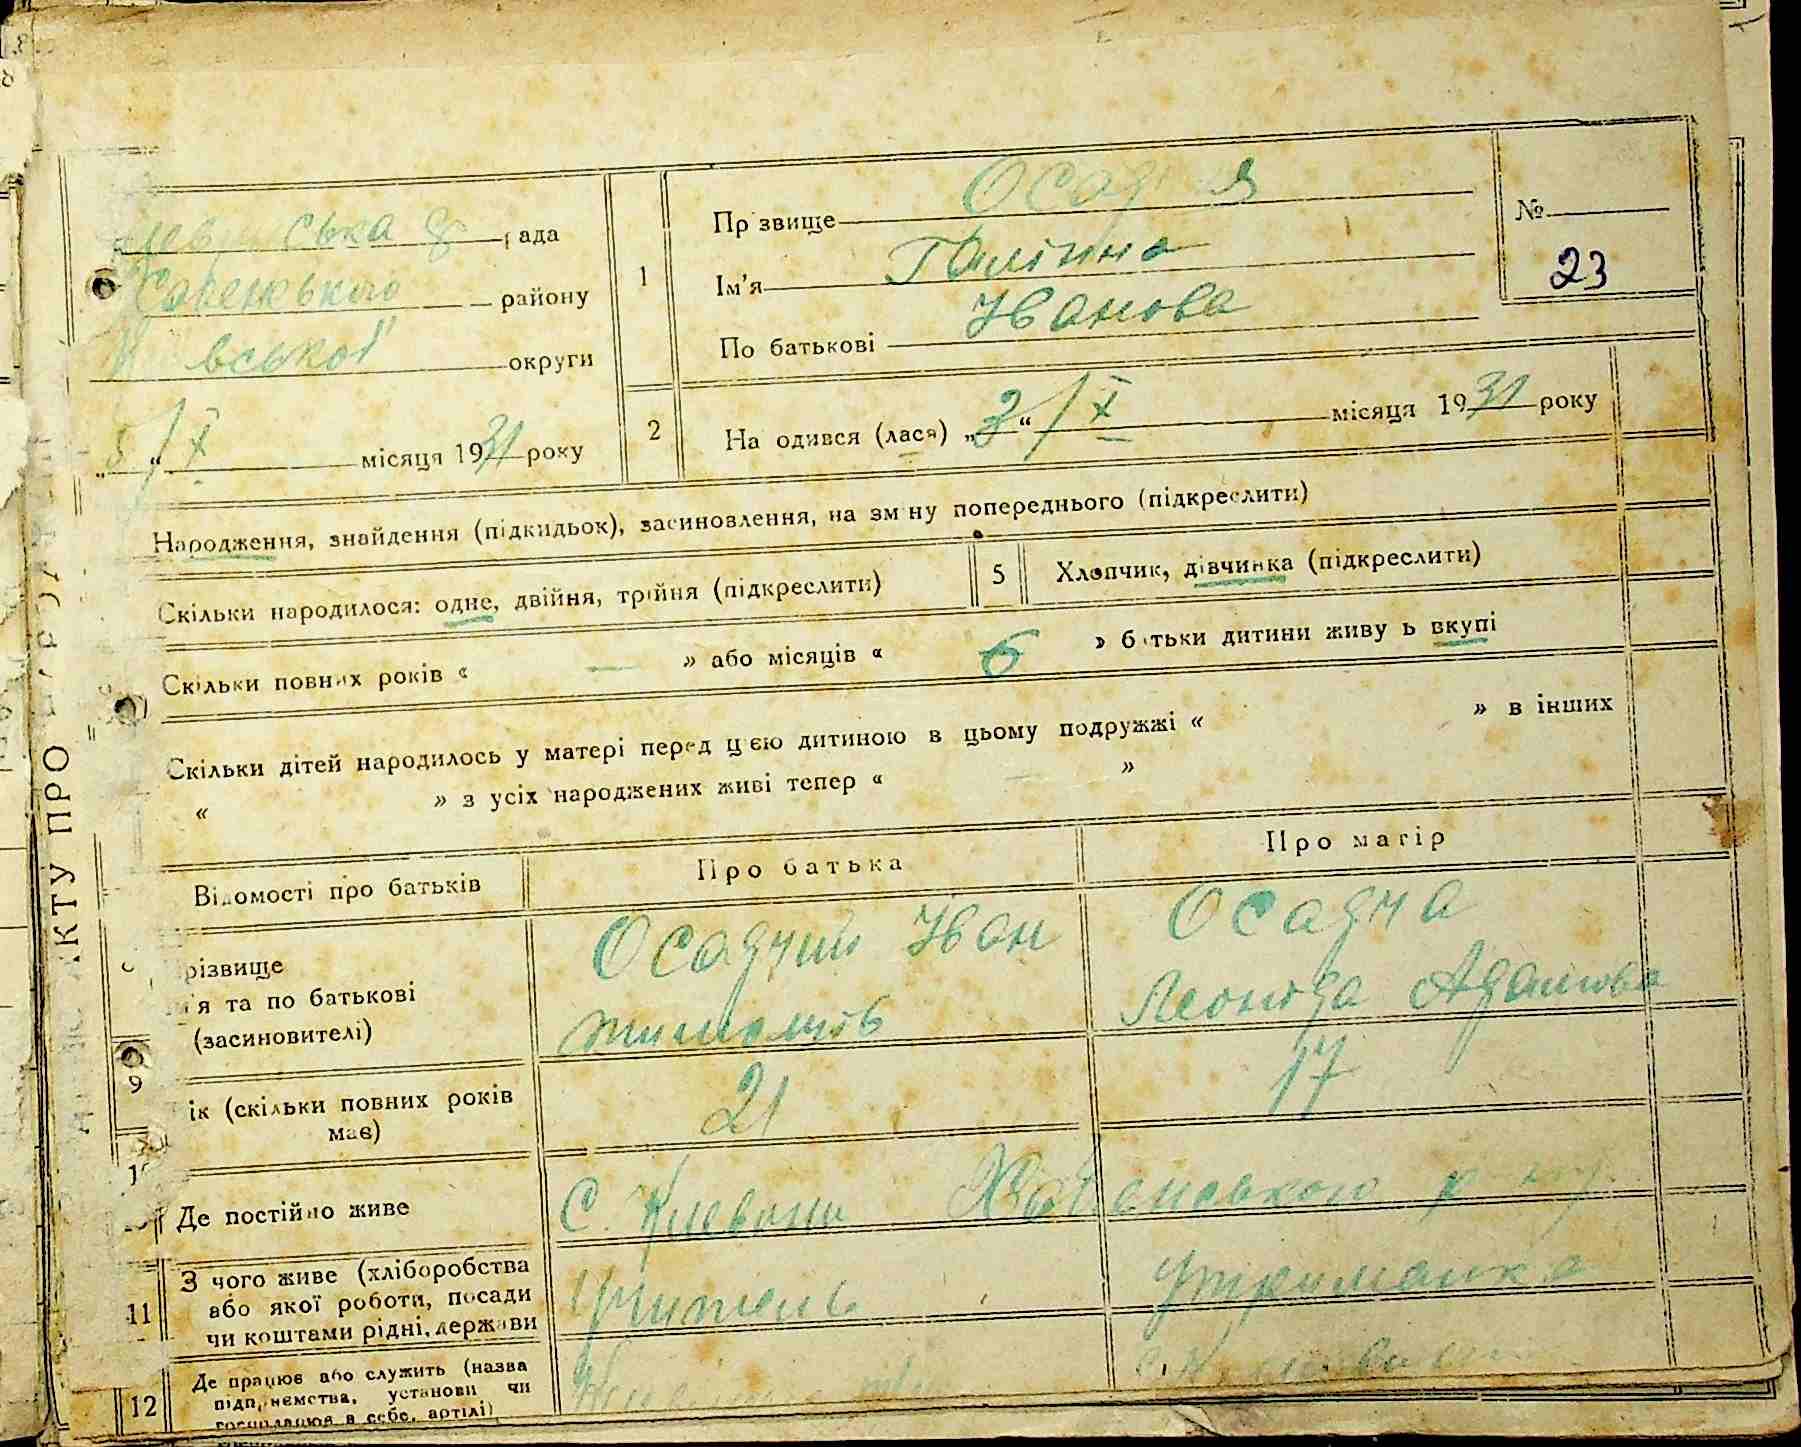 ська рада
району
вської округи
„5“ / X місяця 1931 року
1
Пр звище
Ім'я Галина
По батькові Иванова
№
23
2
На одився (лася) „3“ / X місяця 1931 року
Народження, знайдення (підкидьок), засиновлення, на зм ну попереднього (підкреслити)
Скільки народилося: одне, двійня, трійня (підкреслити)
5
Хлопчик, дівчинка (підкреслити)
Скільки повних років « — » або місяців « 6 » б тьки дитини живу ь вкупі
Скільки дітей народилось у матері перед цією дитиною в цьому подружжі « » в інших
« » з усіх народжених живі тепер « — »
КТУ ПРО
Відомості про батьків
Про батька
Про матір
різвище
я та по батькові
(засиновителі)
Осадчий Иван
Осадча
Леонида Адамова
9
ік (скільки повних років
має)
21
17
Де постійно живе
с.
11
З чого живе (хліборобства
або якої роботи, посади
чи коштами рідні, держави
Учитель
Утриманка
12
Де працює або служить (назва
підприємства, установи чи
господарює в себе, артілі)